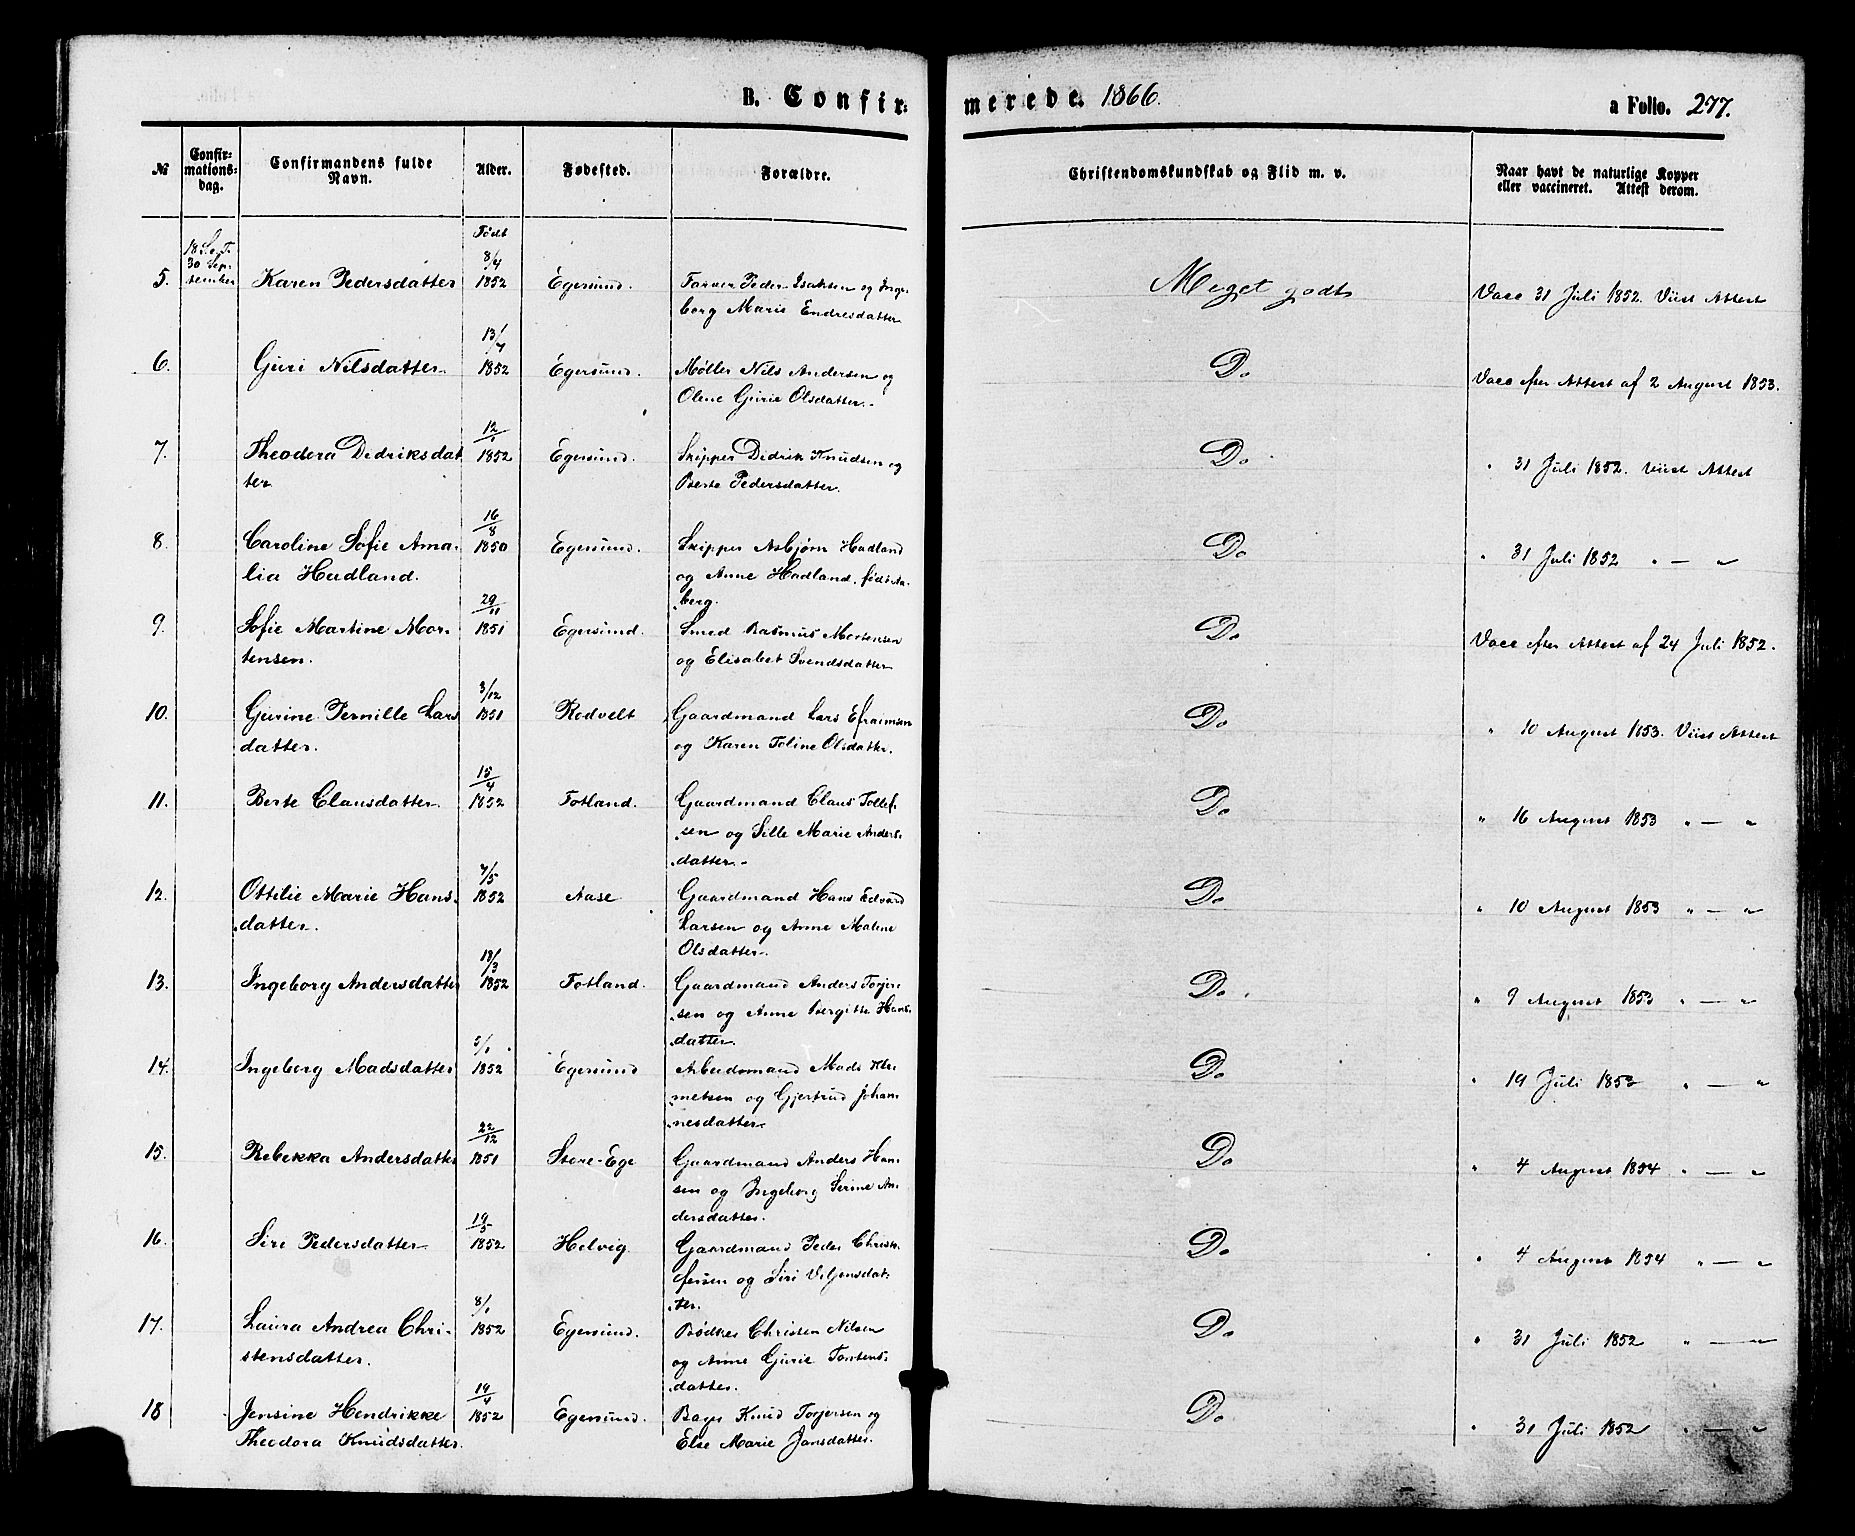 B. Confirmerede. 1866. a Folio. 277.
№ Confirmationsdag. Confirmandens fulde Navn. Alder. Fødested. Forældre. Christendomskundskab og Flid m. v. Naar havt de naturlige Kopper eller vaccineret. Attest derom.
Født
30 September
8/4
5. Karen Pedersdatter 1852 Egersund. Farver Peder Isaksen og Inge- Meget godt Vacc 31 Juli 1852. Viist Attest
borg Marie Endresdatter
13/4
6. Guri Nilsdatter. 1852 Egersund. Møller Nils Andersen og Do Vacc efter Attest af 2 August 1853.
Olene Gurie Olsdatter.
12/1
7. Theodora Didriksdat 1852 Egersund. Skipper Didrik Knudsen og Do " 31 Juli 1852. Viist Attest
ter Berte Pedersdatter.
16/8
8. Caroline Sofie Ama- 1850 Egersund. Skipper Asbjørn Hadland Do " 31 Juli 1852 " — "
lia Hadland. og Anne Hadland, født Aa-
berg.
29/11
9. Sofie Martine Mor- 1851 Egersund. Smed Rasmus Mortensen Do Vacc efter Attest af 24 Juli 1852.
tensen. og Elisabet Svendsdatter
3/12
10. Gurine Pernille Lars 1851 Rodvelt Gaardmand Lars Efraimsen Do " 10 August 1853. Viist Attest
datter. og Karen Toline Olsdatter.
15/4
11. Berte Clausdatter. 1852 Fotland. Gaardmand Claus Tollef- Do " 16 August 1853 " — "
sen og Sille Marie Anders-
datter.
7/5
12. Ottilie Marie Hans- 1852 Aase Gaardmand Hans Edvard Do " 10 August 1853 " — "
datter. Larsen og Anne Malene
Olsdatter.
13/3
13. Ingeborg Andersdatter 1852 Fotland. Gaardmand Anders Torjer Do " 9 August 1853 " — "
sen og Anne Bergitte Hans-
datter.
5/1
14. Ingeborg Madsdatter 1852 Egersund Arbeidsmand Mads Kle- Do " 19 Juli 1853 " — "
metsen og Gjertrud Johan-
nesdatter.
22/12
15. Rebekka Andersdatter 1851 Store-Ege Gaardmand Anders Han- Do " 4 August 1854 " — "
sen og Ingeborg Serine An-
dersdatter.
19/5
16. Siri Pedersdatter 1852 Helvig Gaardmand Peder Christo- Do " 4 August 1854 " — "
fersen og Siri Veljensdat-
ter.
8/1
17. Laura Andrea Chri- 1852 Egersund. Bødker Christen Nilsen Do " 31 Juli 1852 " — "
stensdatter. og Anne Gurie Tostens-
datter.
19/4
18 Jensine Hendrikke 1852 Egersund. Bager Knud Torjersen og Do " 31 Juli 1852 " — "
Theodora Knudsdatter. Else Marie Jansdatter.